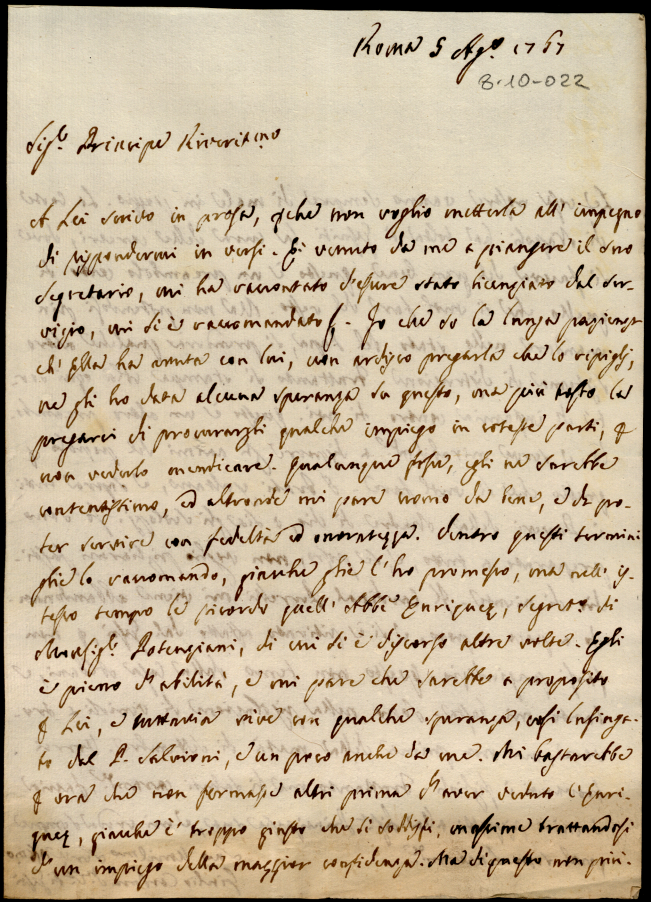 Roma 5 Ag.º 1767
8-10-022
Sig.r Principe Riveritmo
A Lei scrivo in prosa, perche non voglio metterla all' impegno
di rispondermi in versi. È venuto da me a piangere il suo
Segretario, mi ha raccontato d'essere stato licenziato dal ser-
vizio, mi si è raccomandato. Io che so la lunga pazienza
ch' Ella ha avuta con lui, non ardisco pregarla che lo ripigli,
ne gli ho data alcuna speranza su questo, ma più tosto la
pregarei di procurargli qualche impiego in coteste parti, p
non vederlo mendicare. Qualunque fosse, egli ne sarebbe
contentissimo, ed altronde mi pare uomo da bene, e da po-
ter servire con fedeltà ed onoratezza. Dentro questi termini
glie lo raccomando, giacche glie l'ho promesso, ma nell' is-
tesso tempo le ricordo quell' Abbe Enriquez, Segret.º di
Monsig.r Potenziani, di cui si è discorso altre volte. Egli
è pieno d'abilità, e mi pare che sarebbe a proposito
p Lei, e tuttavia vive con qualche speranza, così lusinga-
to dal P. Salvioni, e un poco anche da me. Mi bastarebbe
p ora che non fermasse altri prima d'aver veduto l'Enri-
quez, giacche è troppo giusto che si soddisfi, massime trattandosi
d'un impiego della maggior confidenza. Ma di questo non piu.